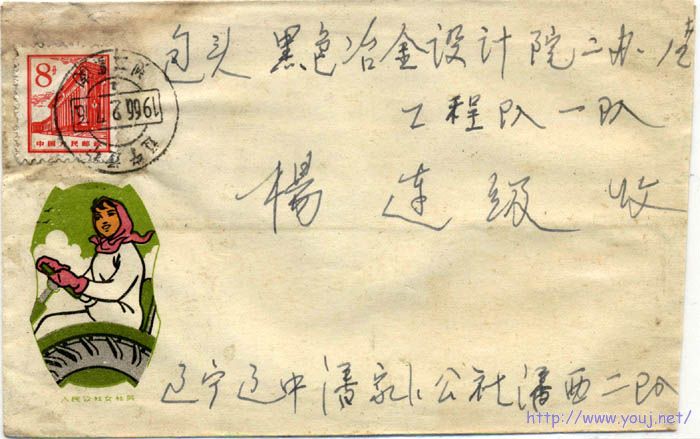 包头 黑色冶金设计院二办
工程队一队
楊連级 收
8分
中国人民邮政
1966.2.7
人民公社女社员
辽宁辽中潘家卜公社潘西二队
http://www.youj.net/